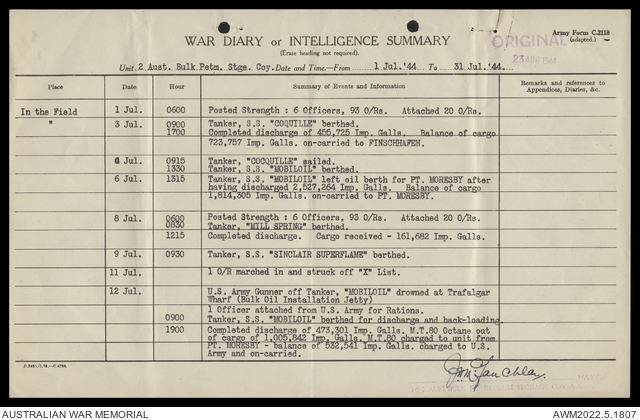 Army Form C.2118
(adapted.)
WAR DIARY or INTELLIGENCE SUMMARY
(Erase heading not required).
ORIGINAL
23 AUG 1944
Unit 2 Aust. Bulk Petm. Stge. Coy. Date and Time—From 1 Jul.'44 To 31 Jul.'44.
Place Date Hour Summary of Events and Information Remarks and references to Appendices, Diaries, &c.
In the Field 1 Jul. 0600 Posted Strength : 6 Officers, 93 O/Rs. Attached 20 O/Rs.
" 3 Jul. 0900 Tanker, S.S. "COQUILLE" berthed.
1700 Completed discharge of 455,725 Imp. Galls. Balance of cargo
723,757 Imp. Galls. on-carried to FINSCHHAFEN.
4 Jul. 0915 Tanker, "COCQUILLE" sailed.
1330 Tanker, S.S. "MOBILOIL" berthed.
6 Jul. 1315 Tanker, S.S. "MOBILOIL" left oil berth for PT. MORESBY after
having discharged 2,527,264 Imp. Galls. Balance of cargo
1,814,305 Imp. Galls. on-carried to PT. MORESBY.
8 Jul. 0600 Posted Strength : 6 Officers, 93 O/Rs. Attached 20 O/Rs.
0830 Tanker, "MILL SPRING" berthed.
1215 Completed discharge. Cargo received - 161,682 Imp. Galls.
9 Jul. 0930 Tanker, S.S. "SINCLAIR SUPERFLAME" berthed.
11 Jul. 1 O/R marched in and struck off "X" List.
12 Jul. U.S. Army Gunner off Tanker, "MOBILOIL" drowned at Trafalgar
Wharf (Bulk Oil Installation Jetty)
1 Officer attached from U.S. Army for Rations.
0900 Tanker, S.S. "MOBILOIL" berthed for discharge and back-loading.
1900 Completed discharge of 473,301 Imp. Galls. M.T.80 Octane out
of cargo of 1,005,842 Imp. Galls. M.T.80 charged to unit from
PT. MORESBY - balance of 532,541 Imp. Galls. charged to U.S.
Army and on-carried.
AUSTRALIAN WAR MEMORIAL
AWM2022.5.1807